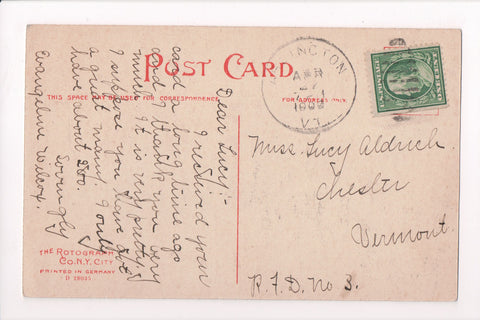 POST CARD.
THIS SPACE MAY BE USED FOR CORRESPONDENCE.
FOR ADDRESS ONLY.
Dear Lucy:-
I received your
card a long time ago
and thank you very
much. It is very pretty.
I suppose you have
a great many. I only
have about 200.
Lovingly
Evangeline Wilcox.
INGTON
APR
27
1909
VT.
Miss Lucy Aldrich.
Chester
Vermont.
R.F.D. No 3.
THE ROTOGRAPH
CO. N.Y. CITY.
PRINTED IN GERMANY